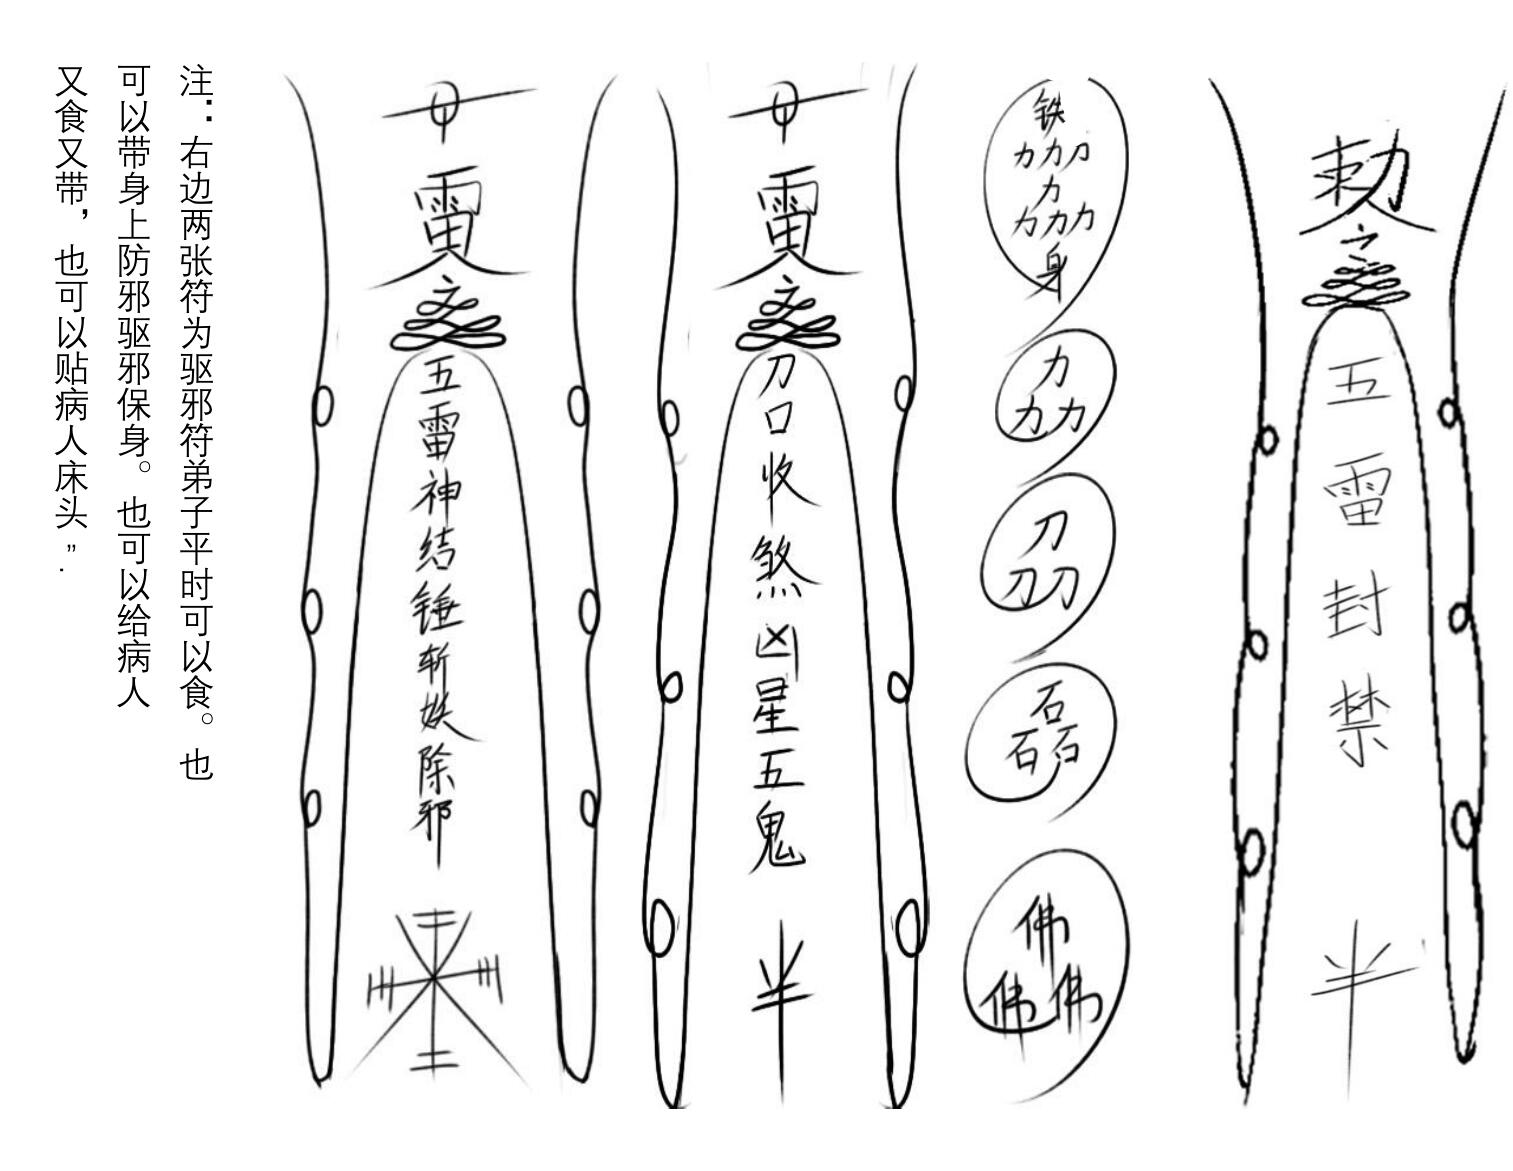 勅
五雷封禁
铁
力力刀
力
力力力
身
力
力力
刀
刀刀
石
石石
佛
佛佛
刀口收煞凶星五鬼
五雷神结锤斩妖除邪
注：右边两张符为驱邪符弟子平时可以食。也
可以带身上防邪驱邪保身。也可以给病人
又食又带，也可以贴病人床头”.